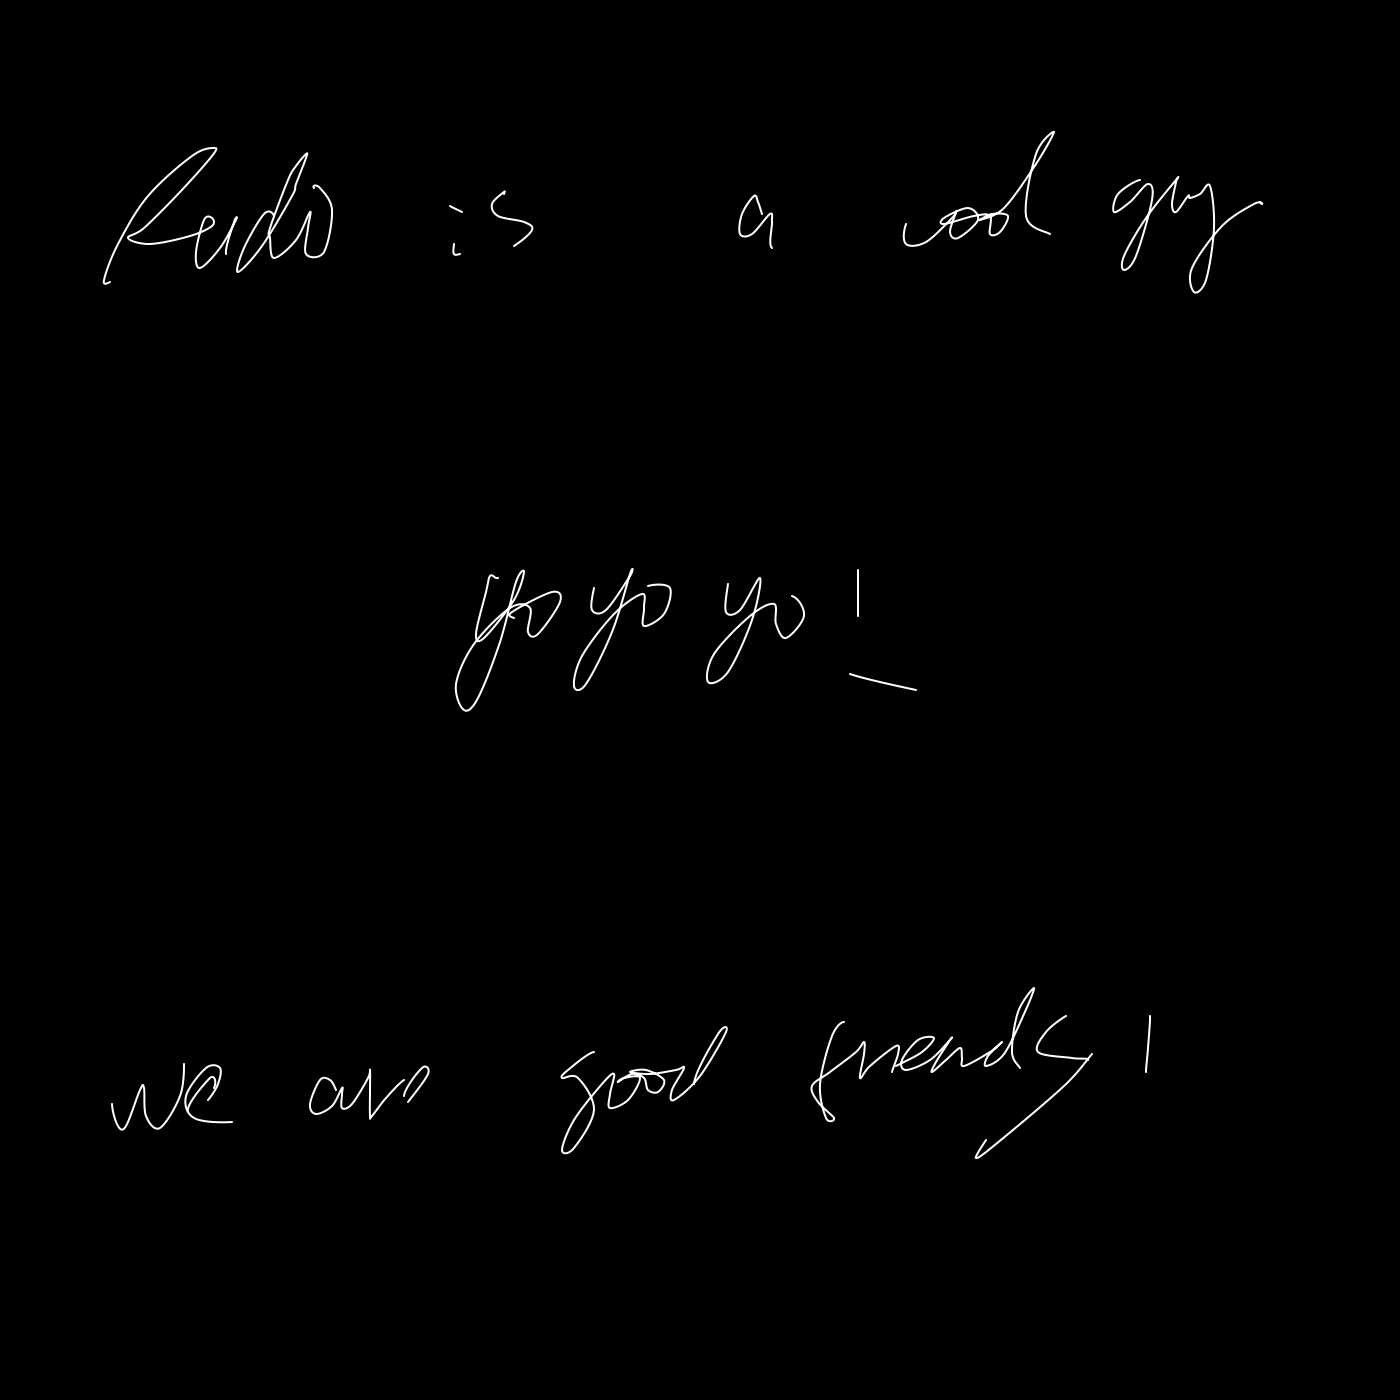 is a cool guy
yo yo yo!
we are good friends!